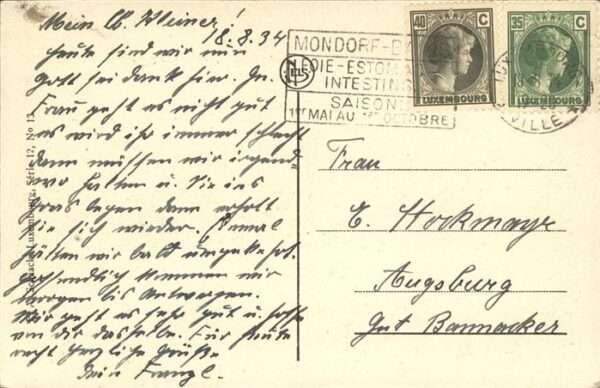 Mein lb. Kleiner!
18.8.34
Heute sind wir nun
Gott sei dank hier. Der
Frau geht es nicht gut
es wird ihr immer schlecht
dann müssen wir irgend
wo halten u. sie ins
Gras legen dann erholt
sie sich wieder. Einmal
hätten wir bald umgekehrt.
Hoffendlich kommen wir
morgen bis Antwerpen.
Mir geht es sehr gut u. hoffe
von dir dasselbe. Für heute
recht herzliche Grüße
Dein Franzl.
Luxembourg, Série 17, No 13
MONDORF-
FOIE-ESTOMA
INTESTINS
SAISON:
1er MAI AU 1er OCTOBRE
40 C
LUXEMBOURG
35 C
LUXEMBOURG
VILLE
Frau
E. Stockmayr
Augsburg
Gut Bannacker